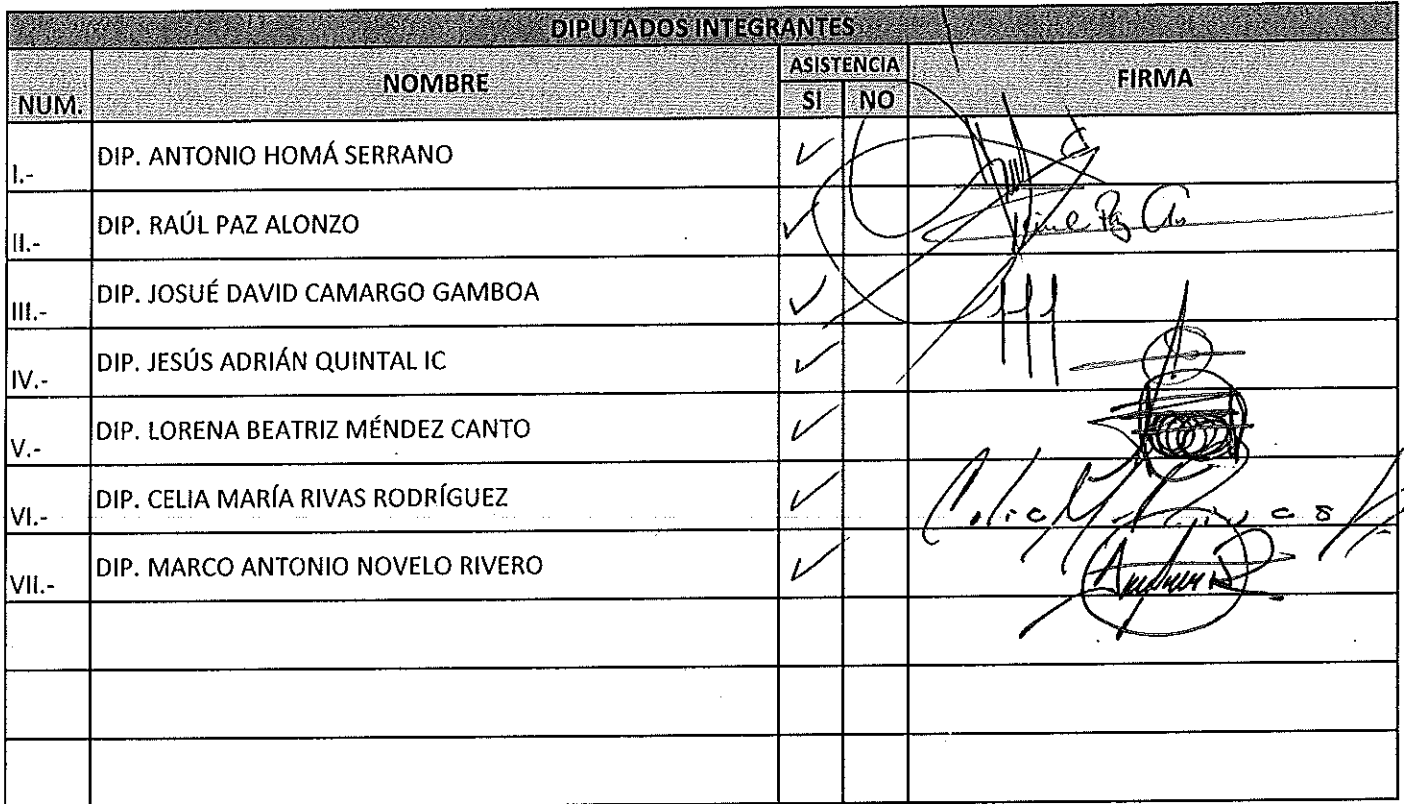 DIPUTADOS INTEGRANTES
NUM. NOMBRE ASISTENCIA SI NO FIRMA
I.- DIP. ANTONIO HOMÁ SERRANO ✓
II.- DIP. RAÚL PAZ ALONZO ✓
III.- DIP. JOSUÉ DAVID CAMARGO GAMBOA ✓
IV.- DIP. JESÚS ADRIÁN QUINTAL IC ✓
V.- DIP. LORENA BEATRIZ MÉNDEZ CANTO ✓
VI.- DIP. CELIA MARÍA RIVAS RODRÍGUEZ ✓
VII.- DIP. MARCO ANTONIO NOVELO RIVERO ✓